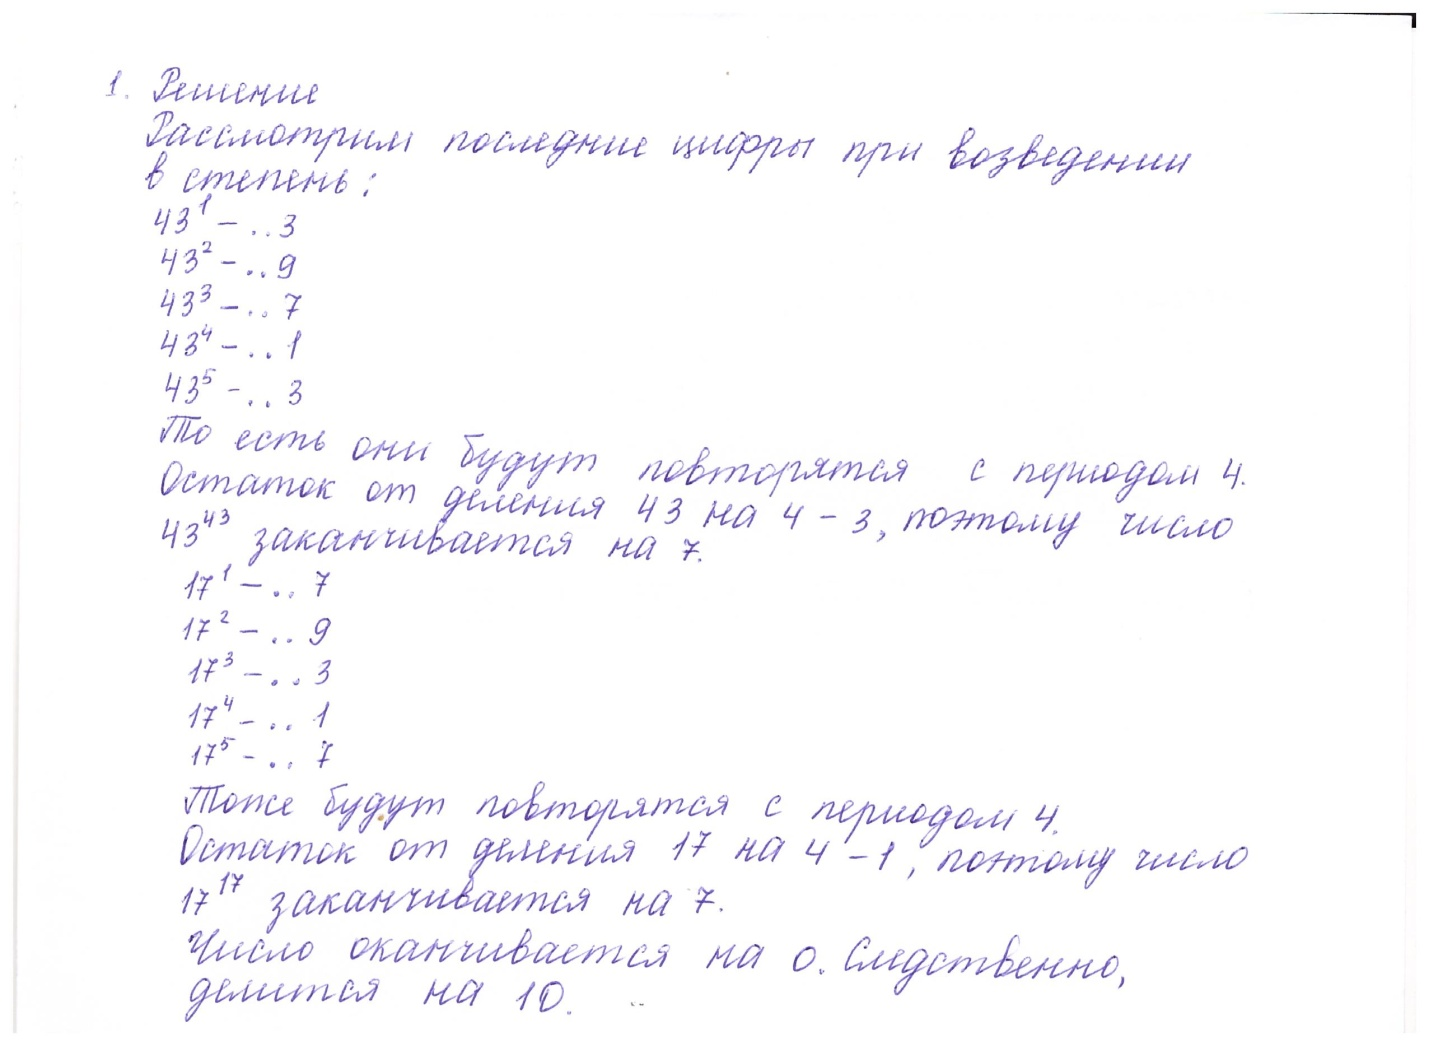 1. Решение
Рассмотрим последние цифры при возведении
в степень:
43¹ – ..3
43² – ..9
43³ – ..7
43⁴ – ..1
43⁵ – ..3
То есть они будут повторятся с периодом 4.
Остаток от деления 43 на 4 – 3, поэтому число
43⁴³ заканчивается на 7.
17¹ – .. 7
17² – .. 9
17³ – .. 3
17⁴ – .. 1
17⁵ – .. 7
Тоже будут повторятся с периодом 4.
Остаток от деления 17 на 4 – 1, поэтому число
17¹⁷ заканчивается на 7.
Число оканчивается на 0. Следственно,
делится на 10.